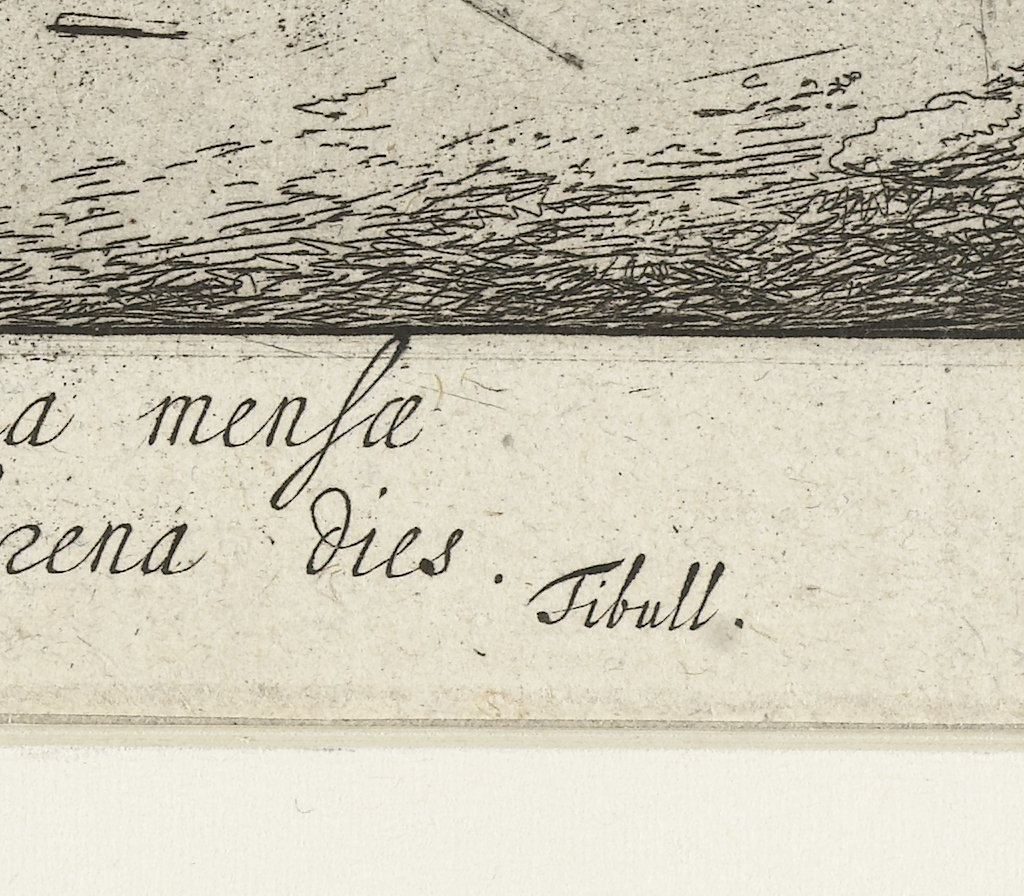 a menſæ
rena dies.
Tibull.